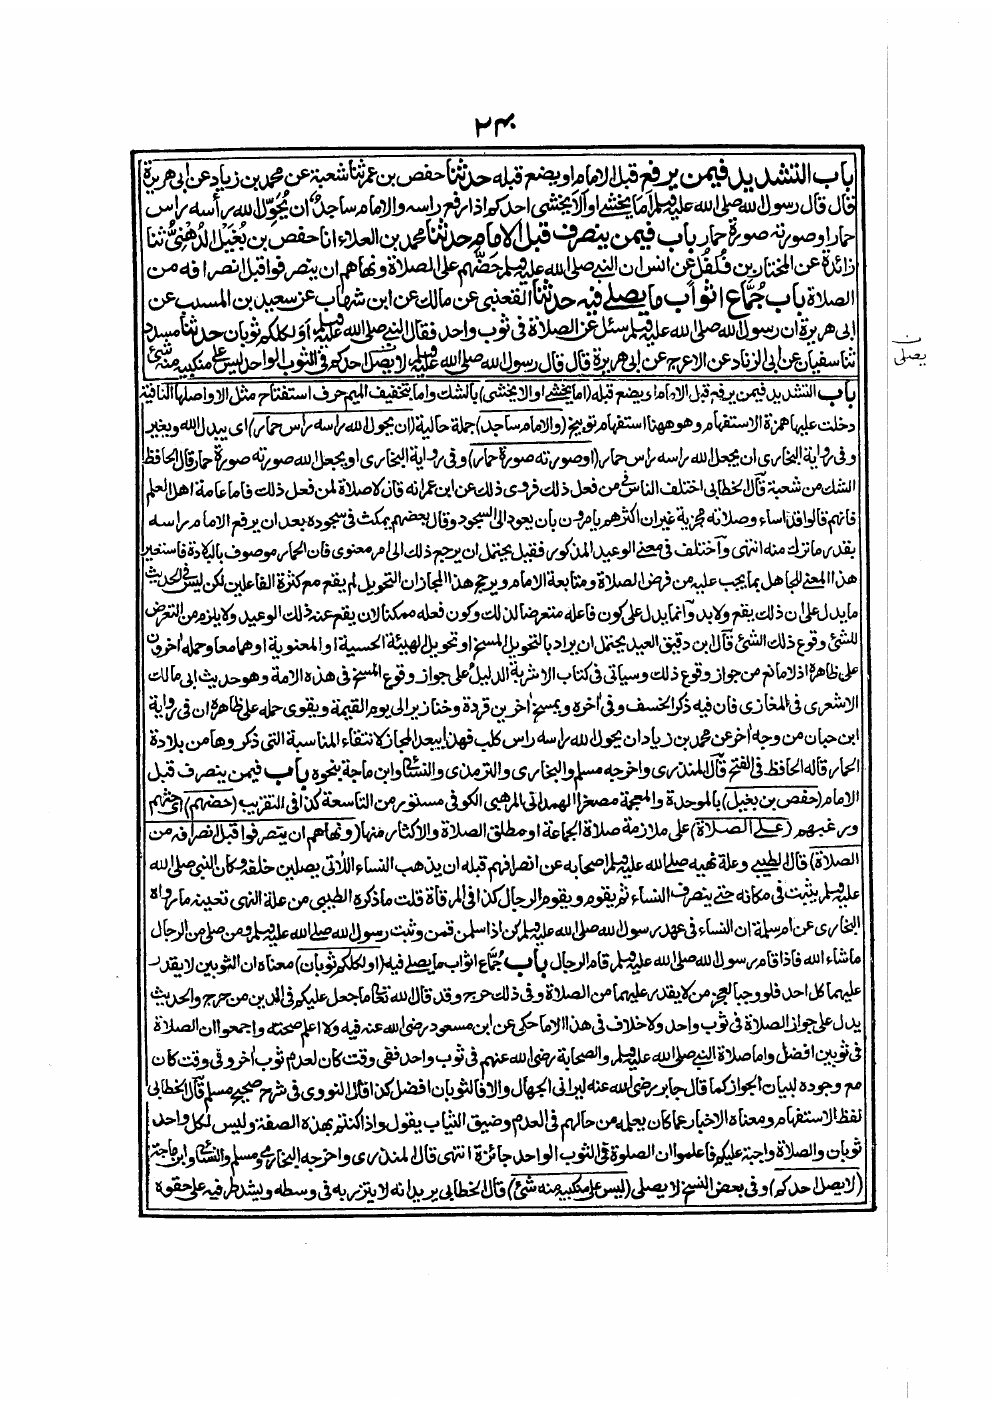 ٢٤٠
باب التشديد فيمن يرفع قبل الامام او يضع قبله حدثنا حفص بن عمر ثنا شعبة عن محمد بن زياد عن ابى هريرة
قال قال رسول الله صلى الله عليه وسلم اَمَا يخشى او اَلَا يخشى احدكم اذا رفع راسه والامام ساجدٌ ان يُحَوِّلَ الله رأسه راس
حمار او صورته صورة حمار باب فيمن ينصرف قبل الامام حدثنا محمد بن العلاء انا حفص بن بُغَيل الدُهنىُّ ثنا
زائدة عن المختار بن فُلفُل عن انس ان النبى صلى الله عليه وسلم حَضَّهم على الصلاة ونهاهم ان ينصرفوا قبل انصرافه من
الصلاة باب جُمّاع اثواب ما يصلى فيه حدثنا القعنبى عن مالك عن ابن شهاب عن سعيد بن المسيب عن
ابى هريرة ان رسول الله صلى الله عليه وسلم سئل عن الصلاة فى ثوب واحد فقال النبى صلى الله عليه وسلم اَوَ لكلكم ثوبان حدثنا مسدد
ثنا سفيان عن ابى الزناد عن الاعرج عن ابى هريرة قال قال رسول الله صلى الله عليه وسلم لا يصل احدكم فى الثوب الواحد ليس على منكبيه منه شئ
ن
يصلى
باب التشديد فيمن يرفع قبل الامام او يضع قبله (اما يخشى او الا يخشى) بالشك واما بتخفيف الميم حرف استفتاح مثل الا واصلها النافية
دخلت عليها همزة الاستفهام وهو ههنا استفهام توبيخ (والامام ساجد) جملة حالية (ان يحول الله راسه راس حمار) اى يبدل الله ويغير
وفى رواية البخارى ان يجعل الله راسه راس حمار (او صورته صورة حمار) وفى رواية البخارى او يجعل الله صورته صورة حمار قال الحافظ
الشك من شعبة قال الخطابى اختلف الناس فى من فعل ذلك فروى ذلك عن ابن عمر انه قال لا صلاة لمن فعل ذلك فاما عامة اهل العلم
فانهم قالوا قد اساء وصلاته مجزية غير ان اكثرهم يامرون بان يعود الى السجود وقال بعضهم يمكث فى سجوده بعد ان يرفع الامام راسه
بقدر ما ترك منه انتهى واختلف فى معنى الوعيد المذكور فقيل يحتمل ان يرجع ذلك الى امر معنوى فان الحمار موصوف بالبلادة فاستعير
هذا المعنى للجاهل بما يجب عليه من فرض الصلاة ومتابعة الامام ويرجح هذا المجاز ان التحويل لم يقع مع كثرة الفاعلين لكن ليس فى الحديث
ما يدل على ان ذلك يقع ولا بد وانما يدل على كون فاعله متعرضا لذلك وكون فعله ممكنا لان يقع عنه ذلك الوعيد ولا يلزم من التعرض
للشئ وقوع ذلك الشئ قال ابن دقيق العيد يحتمل ان يراد بالتحويل المسخ او تحويل الهيئة الحسية او المعنوية او هما معا وحمله اخرون
على ظاهره اذ لا مانع من جواز وقوع ذلك وسياتى فى كتاب الاشربة الدليل على جواز وقوع المسخ فى هذه الامة وهو حديث ابى مالك
الاشعرى فى المغازى فان فيه ذكر الخسف وفى اخره ويمسخ اخرين قردة وخنازير الى يوم القيمة ويقوى حمله على ظاهره ان فى رواية
ابن حبان من وجه اخر عن محمد بن زياد ان يحول الله راسه راس كلب فهذا يبعد المجاز لانتفاء المناسبة التى ذكروها من بلادة
الحمار قاله الحافظ فى الفتح قال المنذرى واخرجه مسلم والبخارى والترمذى والنسائى وابن ماجة بنحوه باب فيمن ينصرف قبل
الامام (حفص بن بغيل) بالموحدة والمعجمة مصغرا الهمدانى المرهبى الكوفى مستور من التاسعة كذا فى التقريب (حضهم) اى حثهم
ورغبهم (على الصلاة) على ملازمة صلاة الجماعة او مطلق الصلاة والاكثار منها (ونهاهم ان ينصرفوا قبل انصرافه من
الصلاة) قال الطيبى وعلة نهيه صلى الله عليه وسلم اصحابه عن انصرافهم قبله ان يذهب النساء اللاتى يصلين خلفه وكان النبى صلى الله
عليه وسلم يثبت فى مكانه حتى ينصرف النساء ثم يقوم ويقوم الرجال كذا فى المرقاة قلت ما ذكره الطيبى من علة النهى تعينه ما رواه
البخارى عن ام سلمة ان النساء فى عهد رسول الله صلى الله عليه وسلم كن اذا سلمن قمن وثبت رسول الله صلى الله عليه وسلم ومن صلى من الرجال
ما شاء الله فاذا قام رسول الله صلى الله عليه وسلم قام الرجال باب جُمّاع اثواب ما يصلى فيه (او لكلكم ثوبان) معناه ان الثوبين لا يقدر
عليهما كل احد فلو وجبا لعجز من لا يقدر عليهما من الصلاة وفى ذلك حرج وقد قال الله تعالى ما جعل عليكم فى الدين من حرج والحديث
يدل على جواز الصلاة فى ثوب واحد ولا خلاف فى هذا الا ما حكى عن ابن مسعود رضى الله عنه فيه ولا اعلم صحته واجمعوا ان الصلاة
فى ثوبين افضل واما صلاة النبى صلى الله عليه وسلم والصحابة رضى الله عنهم فى ثوب واحد ففى وقت كان لعدم ثوب اخر وفى وقت كان
مع وجوده لبيان الجواز كما قال جابر رضى الله عنه ليرانى الجهال والا فالثوبان افضل كذا قال النووى فى شرح صحيح مسلم قال الخطابى
لفظ الاستفهام ومعناه الاخبار عما كان يعلمه من حالهم فى العدم وضيق الثياب يقول واذا كنتم بهذه الصفة وليس لكل واحد
ثوبان والصلاة واجبة عليكم فاعلموا ان الصلوة فى الثوب الواحد جائزة انتهى قال المنذرى واخرجه البخارى ومسلم والنسائى وابن ماجة
(لا يصل احدكم) وفى بعض النسخ لا يصلى (ليس على منكبيه منه شئ) قال الخطابى يريد انه لا يتزر به فى وسطه ويشد طرفيه على حقوه